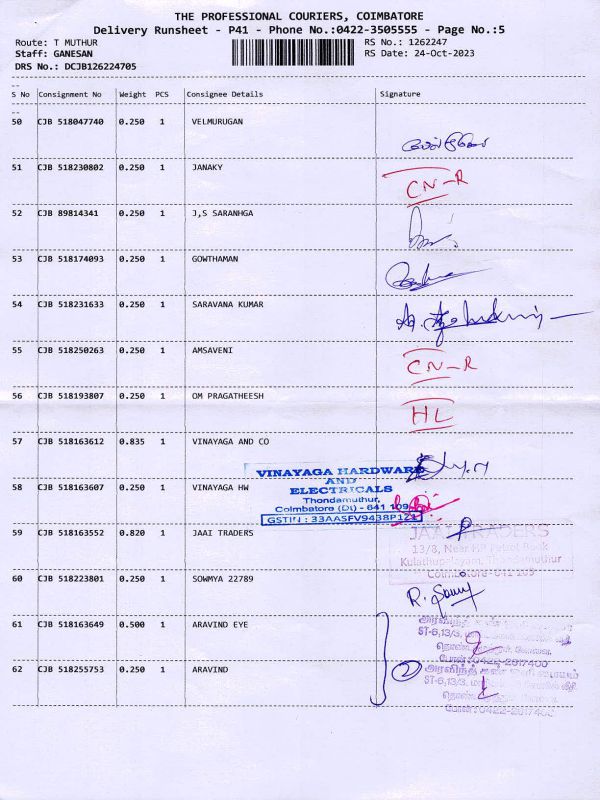 THE PROFESSIONAL COURIERS, COIMBATORE
Delivery Runsheet - P41 - Phone No.:0422-3505555 - Page No.:5
Route: T MUTHUR RS No.: 1262247
Staff: GANESAN RS Date: 24-Oct-2023
DRS No.: DCJB126224705
S No Consignment No Weight PCS Consignee Details Signature
50 CJB 518047740 0.250 1 VELMURUGAN
51 CJB 518230802 0.250 1 JANAKY CN-R
52 CJB 89814341 0.250 1 J,S SARANHGA
53 CJB 518174093 0.250 1 GOWTHAMAN
54 CJB 518231633 0.250 1 SARAVANA KUMAR
55 CJB 518250263 0.250 1 AMSAVENI CN-R
56 CJB 518193807 0.250 1 OM PRAGATHEESH HL
57 CJB 518163612 0.835 1 VINAYAGA AND CO
VINAYAGA HARDWARE
AND
ELECTRICALS
Thondamuthur,
Coimbatore (Dt) - 641 109
GSTIN : 33AASFV9438P1Z1
58 CJB 518163607 0.250 1 VINAYAGA HW
59 CJB 518163552 0.820 1 JAAI TRADERS
JAAI TRADERS
13/8, Near HP Petrol Bunk
Kulathupalayam, Thondamuthur
Coimbatore-641 109
60 CJB 518223801 0.250 1 SOWMYA 22789
61 CJB 518163649 0.500 1 ARAVIND EYE
62 CJB 518255753 0.250 1 ARAVIND 2